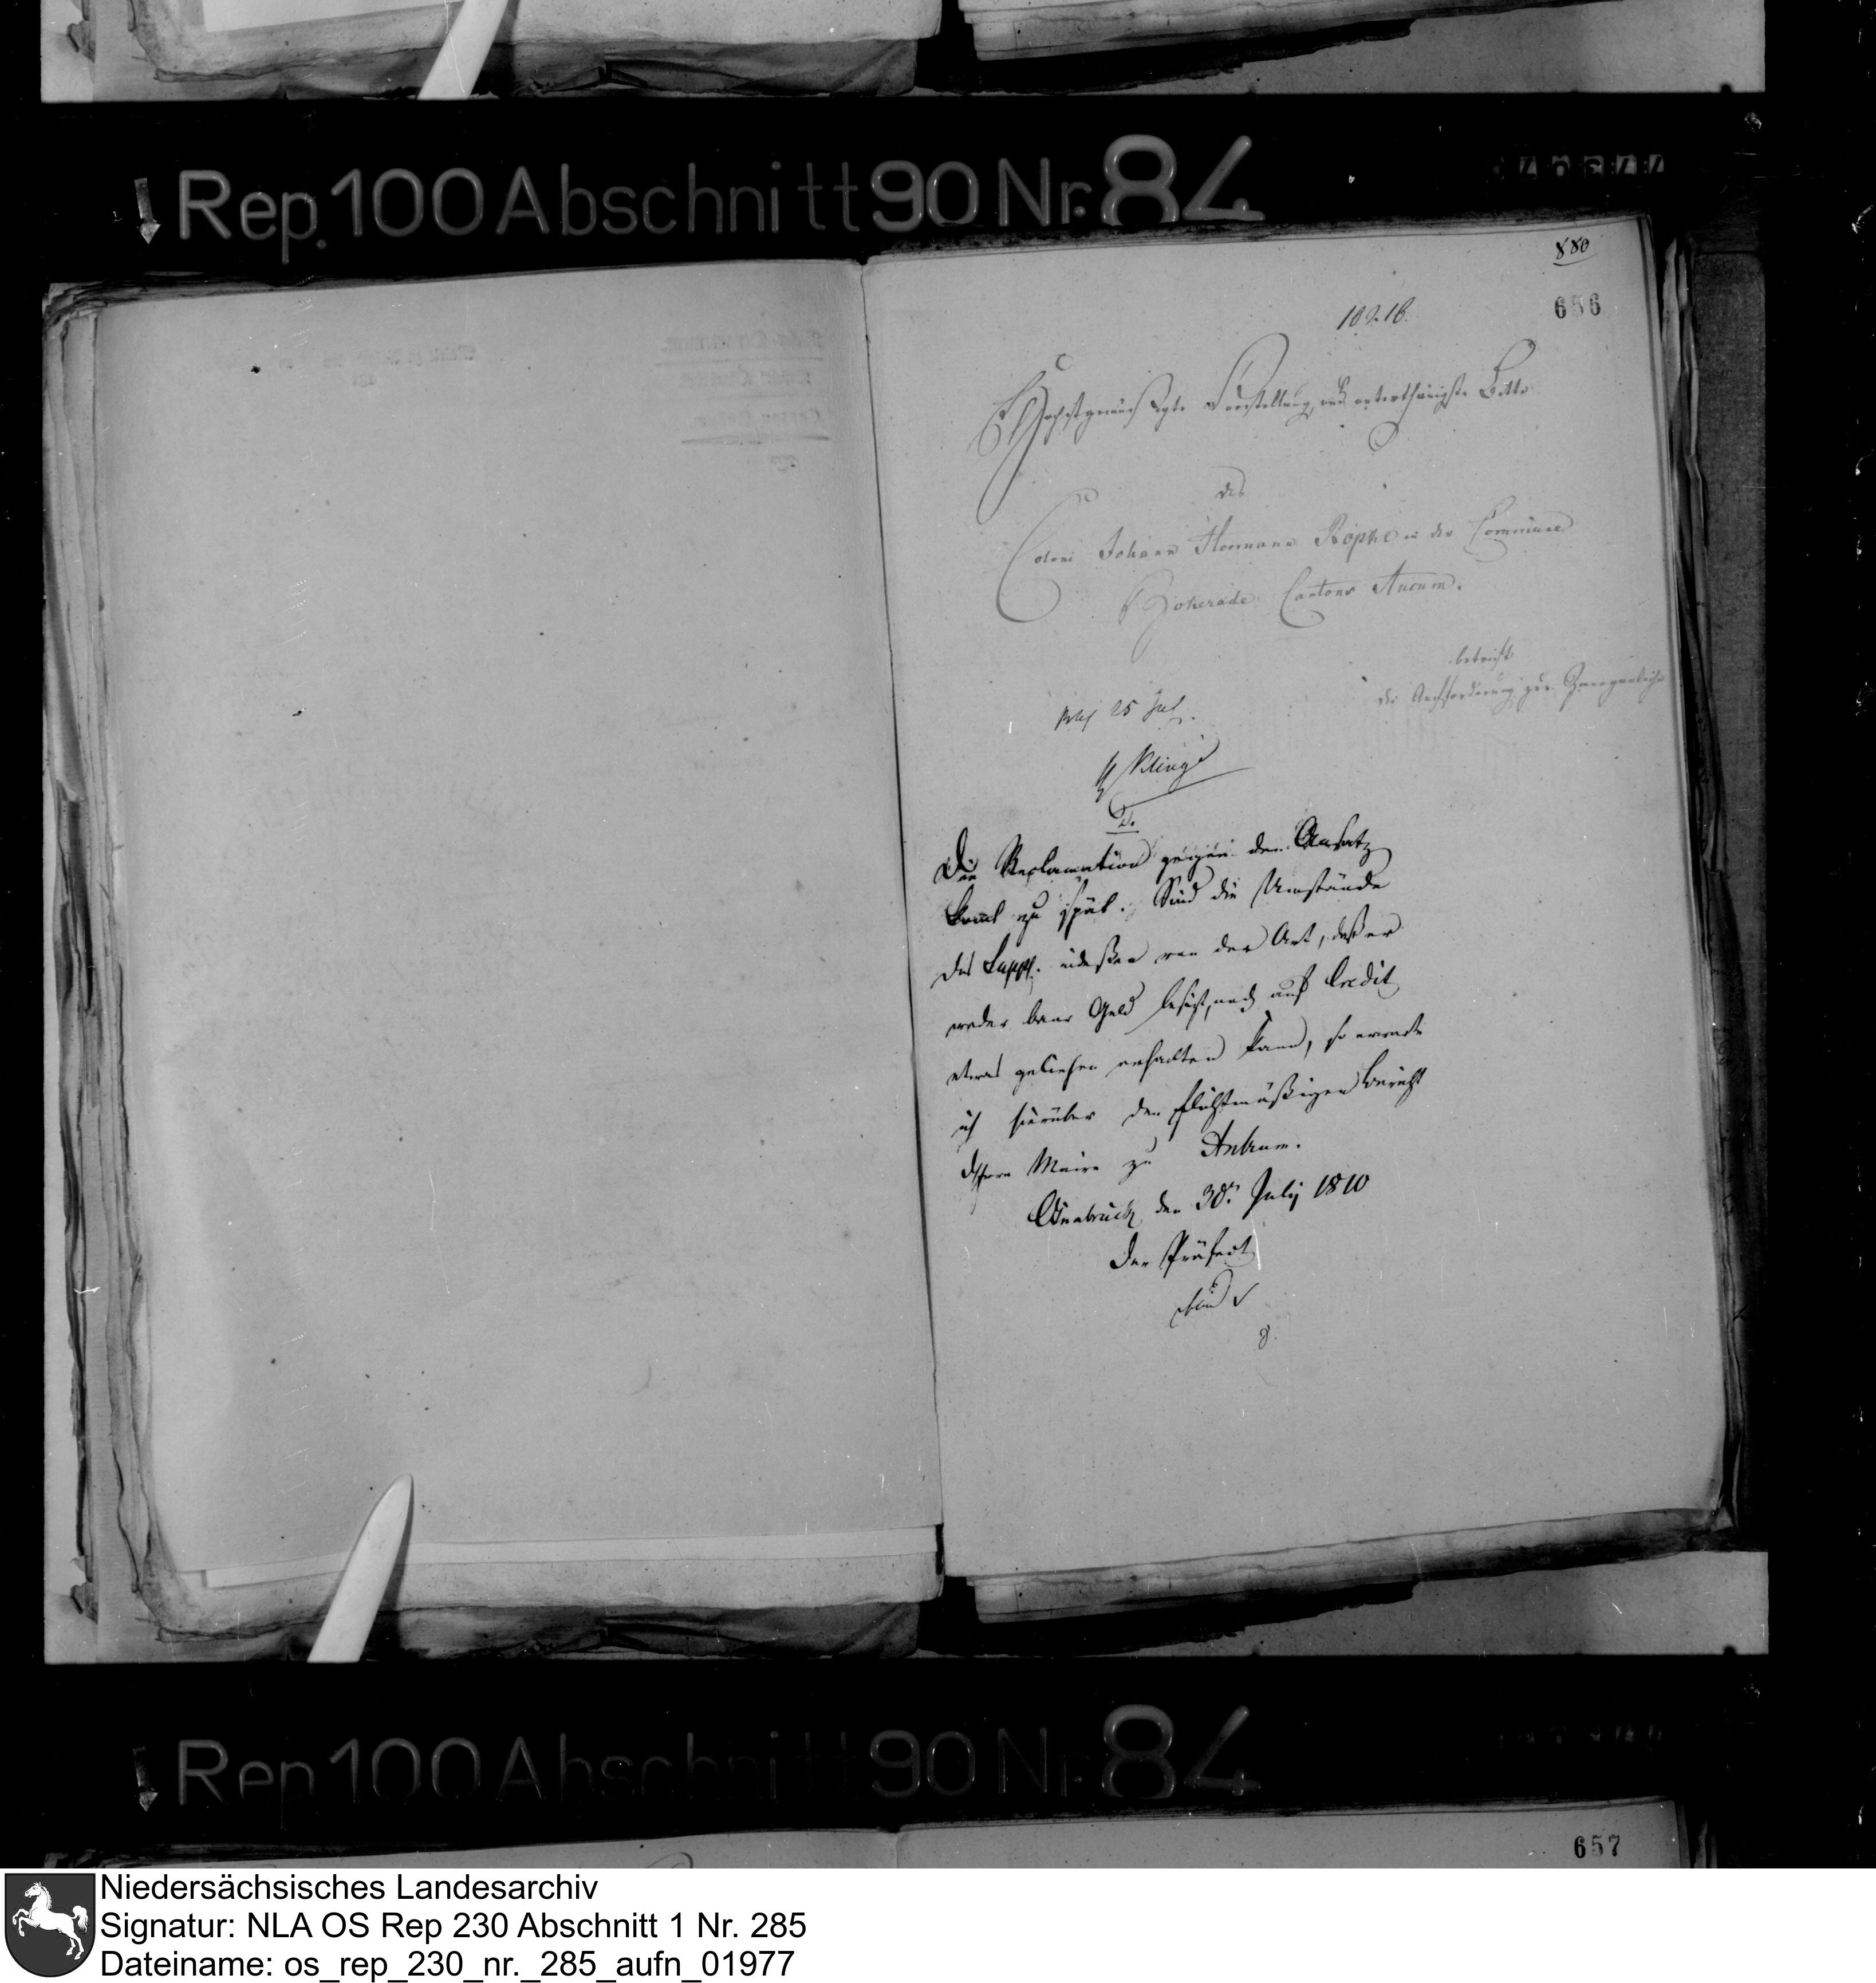 Rep. 100 Abschnitt 90 Nr. 84
880
656
109.18.
Höchstgemüßigte Vorstellung und unterthänigste Bitte
des
Coloni Johann Hermann Röpke in der Commune
Cantons Ancum.
betrift
die Aufforderung zur Zwangsanleihe
25 Jul.
Klinge
D.
Die Reclamation gegen den Ansatz
komt zu spät. Sind die Umstände
des Suppl. indeßen von der Art, daß er
weder baar Geld besizt, noch auf Credit
etwas geliehen erhalten kann, so erwarte
ich hierüber den pflichtmäßigen Bericht
Herrn Maire zu Ankum.
Osnabrück den 30n July 1810
Der Präfect
8.
Rep 100 Abschnitt 90 Nr. 84
657
Niedersächsisches Landesarchiv
Signatur: NLA OS Rep 230 Abschnitt 1 Nr. 285
Dateiname: os_rep_230_nr._285_aufn_01977